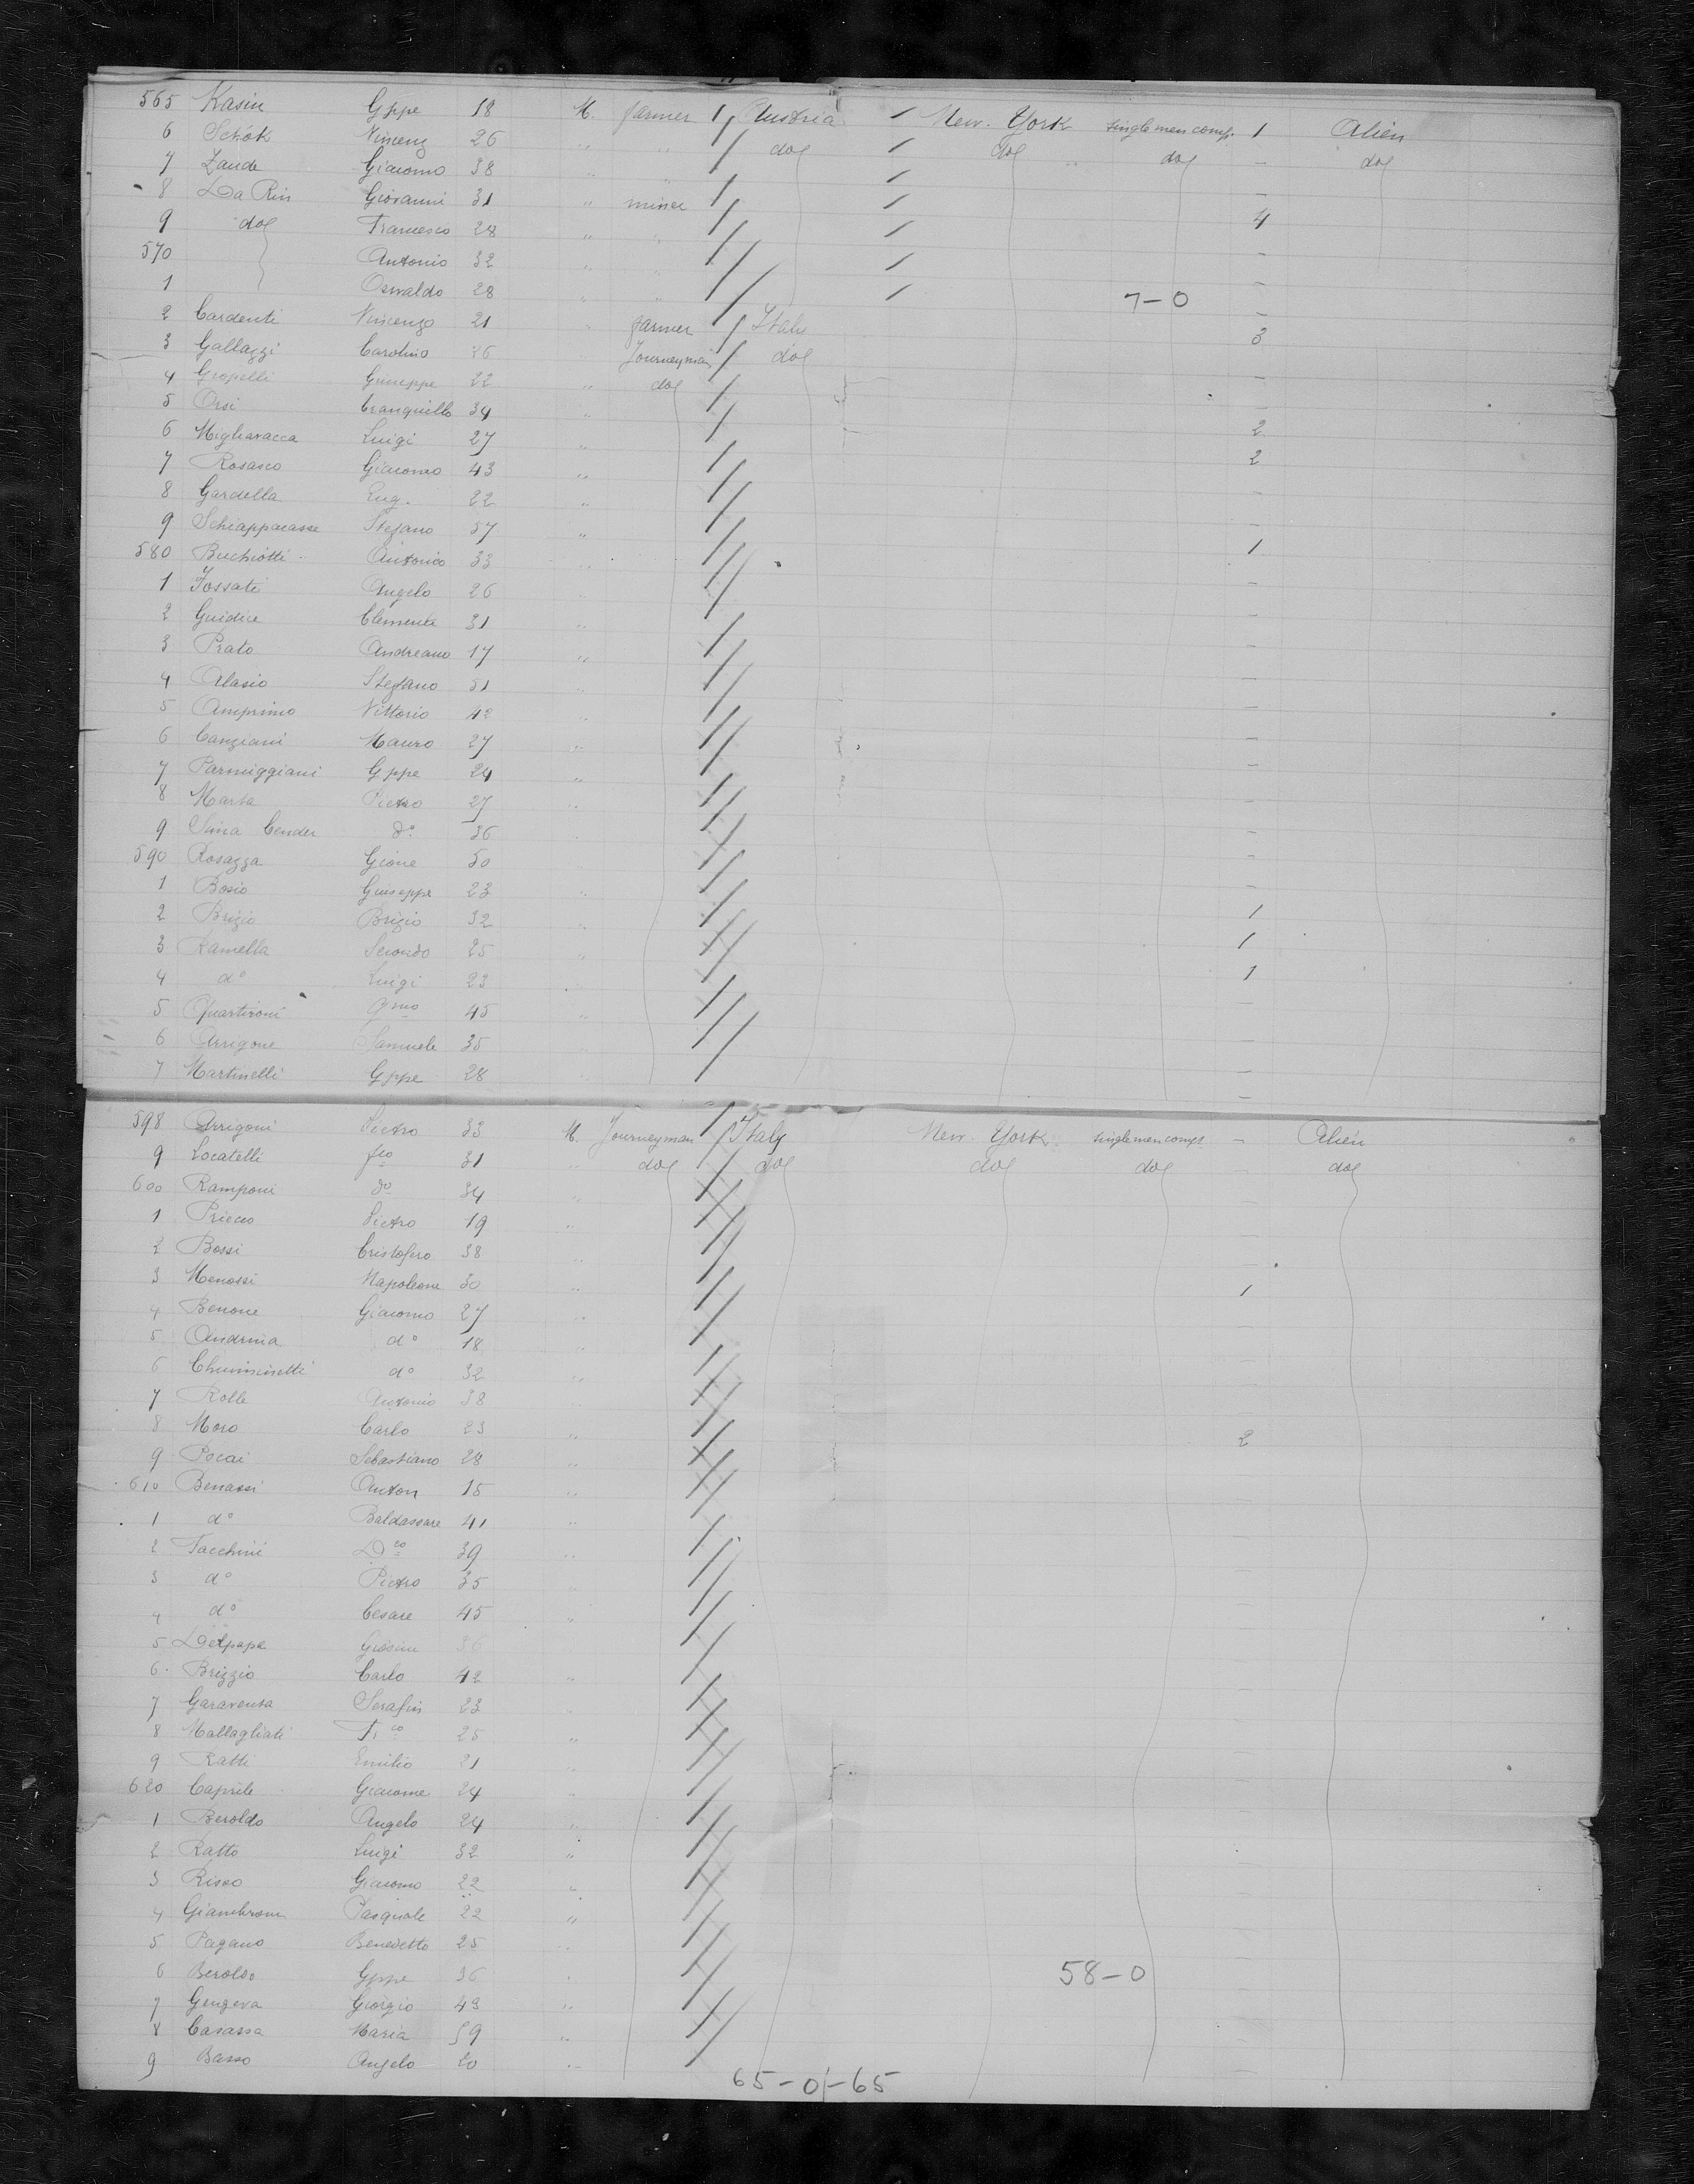 565 Kasin Gppe 18 M. farmer 1 / Austria / New-York single men comp. 1 Alien
6 Schök Vincenz 26 " " / do / do " do - do
7 Zande Giacomo 38 " " / / -
8 Da Rin Giovanni 31 " miner / / 4
9 do Francesco 28 " " / / -
570 Antonio 32 " " / / -
1 Osvaldo 28 " " / / 7-0 -
2 Cardenti Vincenzo 21 " farmer / Italy 3
3 Gallazzi Carolino 26 Journeyman / do -
4 Gropelli Giuseppe 22 " do / -
5 Orsi Tranquillo 34 " / 2
6 Migliavacca Luigi 27 " / 2
7 Rosasco Giacomo 43 " / -
8 Gardella Eug. 22 " / -
9 Schiappacasse Stefano 57 " / 1
580 Buchiotti Antonio 33 " / -
1 Fossati Angelo 26 " / -
2 Guidice Clemente 31 " / -
3 Prato Andreano 17 " / -
4 Alasio Stefano 51 " / -
5 Amprimo Vittorio 42 " / -
6 Canziani Mauro 27 " / -
7 Parmiggiani Gppe 24 " / -
8 Marsa Pietro 27 " / -
9 Sina Cender do 36 / -
590 Rosazza Gione 50 / -
1 Bosio Giuseppe 23 " / 1
2 Brizio Brizio 32 " / 1
3 Ramella Secondo 25 " / 1
4 do Luigi 23 " / -
5 Quartironi Gmo 45 " / -
6 Arrigone Samuele 35 " / -
7 Martinelli Gppe 28 " / -
598 Arrigoni Pietro 33 M. Journeyman / Italy New-York single men comp. - Alien
9 Locatelli fco 31 " do / do do do - do
600 Ramponi do 34 " / -
1 Pricco Pietro 19 " / -
2 Bossi Cristofero 38 " / -
3 Menossi Napoleone 30 " / 1
4 Benone Giacomo 27 " / -
5 Andrina do 18 " / -
6 do 32 " / -
7 Rolle Antonio 38 / -
8 Moro Carlo 23 " / 2
9 Pocai Sebastiano 28 " / -
610 Benassi Anton 15 " / -
1 do Baldassare 41 " / -
2 Tacchini Dco 39 " / -
3 do Pietro 35 " / -
4 do Cesare 45 " / -
5 Delpapa 36 / -
6 Brizzio Carlo 42 " / -
7 Garaventa Serafin 23 " / -
8 Mallagliati Fr co 25 " / -
9 Ratti Emilio 21 " / -
620 Caprile Giacomo 24 " / -
1 Beroldo Angelo 24 " / -
2 Ratto Luigi 32 " / -
3 Risso Giacomo 22 " / -
4 Giambrone Pasquale 22 " / -
5 Pagano Benedetto 25 " / -
6 Beroldo Gppe 36 " / 58-0 -
7 Gengeva Giorgio 49 " / -
8 Casassa Maria 59 " / -
9 Basso Angelo 20 " / -
65-0-65